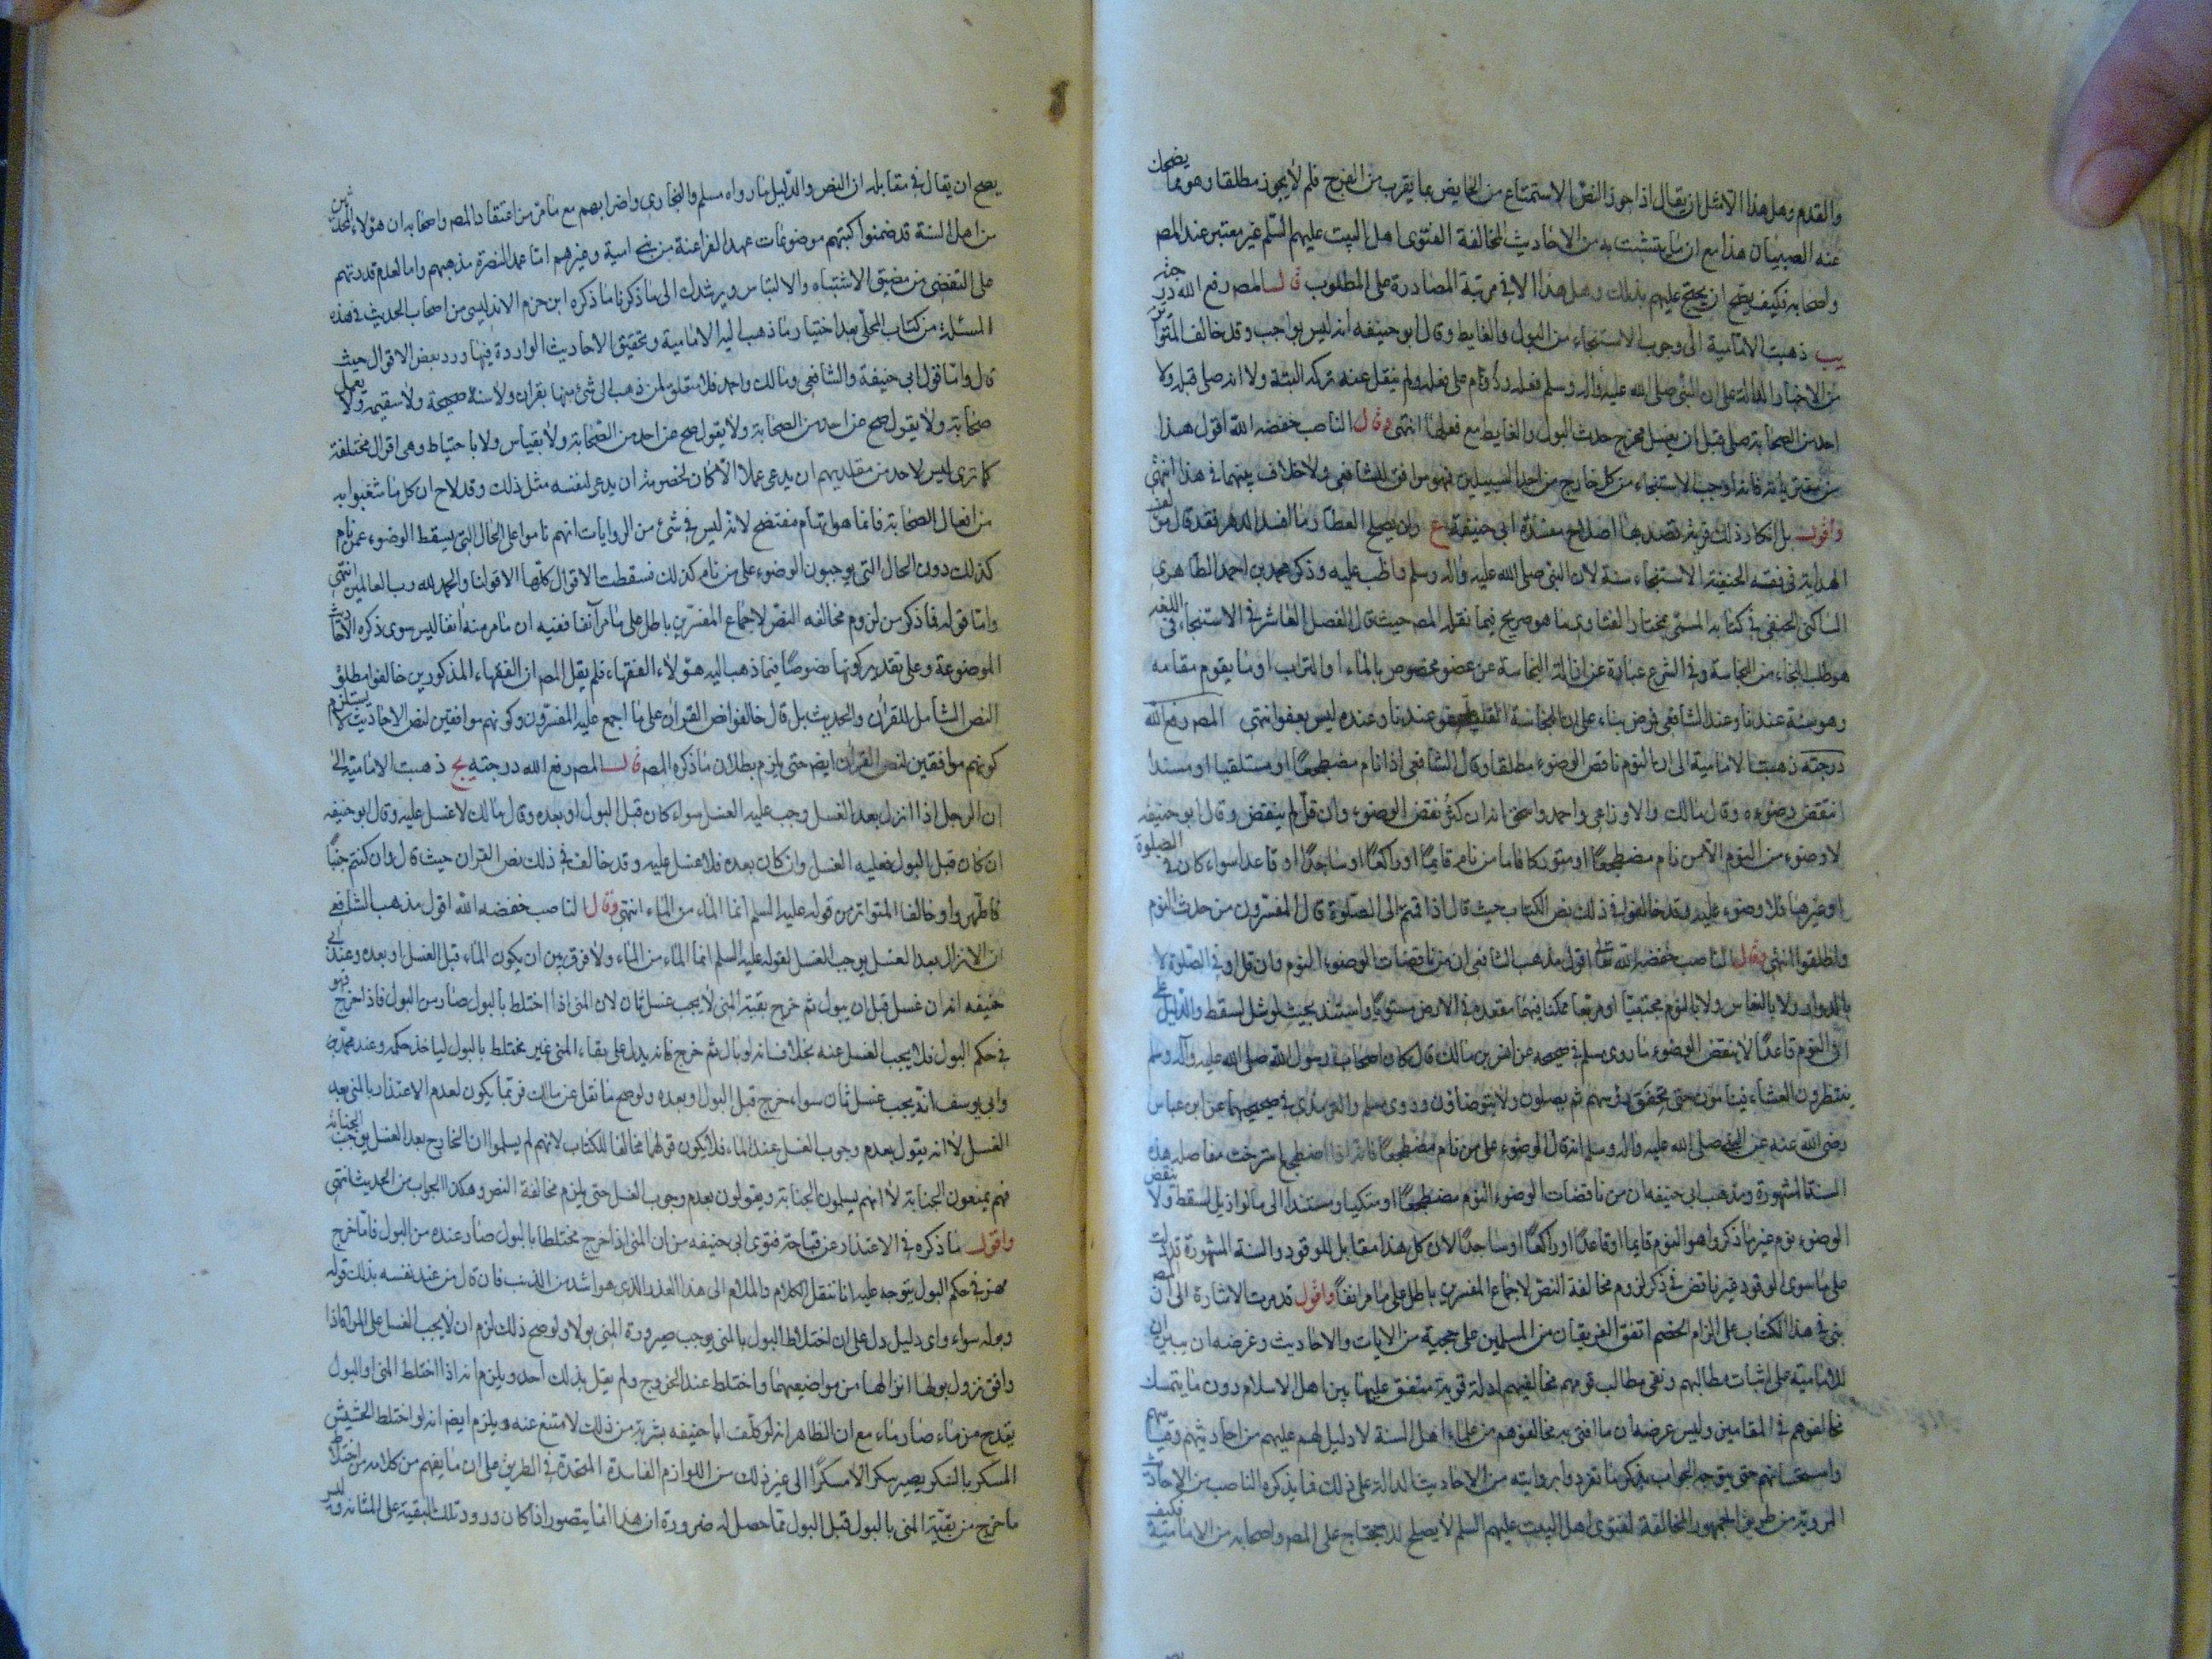 والقدم وهل هذا الا مثل ان يقال اذا جوز النص الاستمتاع من الحايض بما يقرب من الفرج فلم لا يجوز مطلقا وهو مما يضحك
عنه الصبيان هذا مع ان ما يتشبث به من الاحاديث المخالفة لفتوى اهل البيت عليهم السلم غير معتبر عند المص
واصحابه فكيف يصح ان يحتج عليهم بذلك وهل هذا الا في مرتبة المصادرة على المطلوب قال المص رفع الله درجته
يب ذهبت الامامية الى وجوب الاستنجاء من البول والغايط وقال ابو حنيفه انه ليس بواجب وقد خالف المتواتر
من الاخبار الدالة على ان النبي صلى الله عليه واله وسلم فعله وداوم على فعله ولم ينقل عنه تركه البتة ولا انه صلى قبله ولا
احد من الصحابة صلى قبل ان يغسل مخرج حدث البول والغايط مع فعلهما انتهى وقال الناصب خفضه الله اقول هذا
من مفترياته فانه اوجب الاستنجاء من كل خارج من احد السبيلين فهو موافق للشافعي ولا خلاف بينهما في هذا انتهى
واقول بل انكار ذلك فرية قصد بها اصلاح مفسدة ابي حنيفة ع ولن يصلح العطار ما افسد الدهر فقد قال من
الهداية في فقه الحنفية الاستنجاء سنة لان النبي صلى الله عليه واله وسلم واظب عليه وذكر محمد بن احمد الطاهري
الحنفي في كتابه المسمى بمختار الفتاوى ما هو صريح فيما نقله المص حيث قال الفصل العاشر في الاستنجاء في اللغة
هو طلب النجاء من النجاسة وفي الشرع عبارة عن ازالة النجاسة عن عضو مخصوص بالماء او التراب او ما يقوم مقامه
وهو سنة عندنا وعند الشافعي فرض بناء على ان النجاسة القليلة عفو عندنا وعنده ليس بعفو انتهى المص رفع الله
درجته ذهبت الامامية الى ان النوم ناقض الوضوء مطلقا وقال الشافعي اذا نام مضطجعا او مستلقيا او مستندا
انتقض وضوءه وقال مالك والاوزاعي واحمد واسحق انه ان كثر نقض الوضوء وان قل لم ينقض وقال ابو حنيفه
لا وضوء من النوم الا من نام مضطجعا او متوركا فاما من نام قايما او راكعا او ساجدا او قاعدا سواء كان في الصلوة
او غيرها فلا وضوء عليه وقد خالفوا في ذلك نص الكتاب حيث قال اذا قمتم الى الصلوة قال المفسرون من حدث النوم
واطلقوا انتهى وقال الناصب خفضه الله تعالى اقول مذهب الشافعي ان من ناقضات الوضوء النوم وان قل او في الصلوة لا
بالدوار ولا بالنعاس ولا بالنوم محتبيا او مربعا ممكنا فيهما مقعده من الارض مستويا او استند بحيث لو سل لسقط والدليل على
ان النوم قاعدا لا ينقض الوضوء ما روى مسلم في صحيحه عن انس بن مالك قال كان اصحاب رسول الله صلى الله عليه وآله وسلم
ينتظرون العشاء فينامون حتى تخفق رؤسهم ثم يصلون ولا يتوضاؤن وروى مسلم والترمذي في صحيحيهما عن ابن عباس
رضي الله عنه عن النبي صلى الله عليه واله وسلم انه قال الوضوء على من نام مضطجعا فانه اذا اضطجع استرخت مفاصله هذه
السنة المشهورة ومذهب ابي حنيفه ان من ناقضات الوضوء النوم مضطجعا او متكيا او مستندا الى ما لو ازيل لسقط ولا ينقض
الوضوء نوم غير ما ذكر واهو النوم قايما او قاعدا او راكعا او ساجدا لان كل هذا مقابل للرقود والسنة المشهورة قد دلت
على ما سوى الرقود غير ناقض في ذكر لزوم مخالفة النص لاجماع المفسرين باطل على ما مر انفا واقول قد مرت الاشارة الى ان المص
بنى في هذا الكتاب على الزام الخصم اتفق الفريقان من المسلمين على حجية من الايات والاحاديث وغرضه ان يبين ان
للامامية على اثبات مطالبهم ونفي مطالب قومهم مخالفيهم ادلة قوية متفق عليها بين اهل الاسلام دون ما يتمسك
مخالفوهم في المقامين وليس غرضه ان ما افتى به مخالفوهم من علماء اهل السنة لا دليل لهم عليهم من احاديثهم وقياسهم
واستحسانهم حتى يتوجه الجواب بذكر ما تفردوا بروايته من الاحاديث الدالة على ذلك فما يذكره الناصب من الاحاديث
المروية من طريق الجمهور المخالفة لفتوى اهل البيت عليهم السلم لا يصلح للاحتجاج على المص واصحابه من الامامية فكيف
يصح ان يقال في مقابله ان النص والدليل ما رواه مسلم والبخاري واضرابهم مع ما مر من اعتقاد المص واصحابه ان هؤلاء المحدثين
من اهل السنة قد ضمنوا كتبهم موضوعات عهد الفراعنة من بني امية وغيرهم اما عمدا لنصرة مذهبهم واما لعدم قدرتهم
على التفصي من مضيق الاشتباه والالتباس ويرشدك الى ما ذكرنا ما ذكره ابن حزم الاندليسي من اصحاب الحديث في هذه
المسئلة من كتاب المحلى بعد اختيار ما ذهب اليه الامامية وتحقيق الاحاديث الواردة فيها ورد بعض الاقوال حيث
قال واما قول ابي حنيفة والشافعي ومالك واحمد فلا متعلق لمن ذهب الى شئ منها بقران ولا سنة صحيحة ولا سقيمة ولا بعمل
صحابة ولا بقول صح عن احد من الصحابة ولا بقول صح عن احد من الصحابة ولا بقياس ولا باحتياط وهي اقوال مختلفة
كما ترى ليس لاحد من مقلديهم ان يدعي عملا الا كان لخصومه ان يدعي لنفسه مثل ذلك وقد لاح ان كل ما شغبوا به
من افعال الصحابة فانما هو ايهام مفتضح لانه ليس في شئ من الروايات انهم ناموا على الحال التي يسقط الوضوء عمن نام
كذلك دون الحال التي يوجبون الوضوء على من نام كذلك فسقطت الاقوال كلها الا قولنا والحمد لله رب العالمين انتهى
واما قوله فما ذكر من لزوم مخالفه النص لاجماع المفسرين باطل على ما مر آنفا ففيه ان ما مر منه انفا ليس سوى ذكره الاحاديث
الموضوعة وعلى تقدير كونها نصوصا فيما ذهب اليه هؤلاء الفقهاء فلم يقل المص ان الفقهاء المذكورين خالفوا مطلق
النص الشامل للقران والحديث بل قال خالفوا نص القران على ما اجمع عليه المفسرون وكونهم موافقين لنص الاحاديث لا يستلزم
كونهم موافقين لنص القران ايضا حتى يلزم بطلان ما ذكره المص قال المص رفع الله درجته يج ذهبت الامامية الى
ان الرجل اذا انزل بعد الغسل وجب عليه الغسل سواء كان قبل البول او بعده وقال مالك لا غسل عليه وقال ابو حنيفه
ان كان قبل البول فعليه الغسل وان كان بعده فلا غسل عليه وقد خالف في ذلك نص القران حيث قال وان كنتم جنبا
فاطهروا وخالفا المتواتر من قوله عليه السلم انما الماء من الماء انتهى وقال الناصب خفضه الله اقول مذهب الشافعي
ان الانزال بعد الغسل يوجب الغسل لقوله عليه السلم انما الماء من الماء ولا فرق بين ان يكون الماء قبل الغسل او بعده وعند ابي
حنيفه انه ان غسل قبل ان يبول ثم خرج بقية المني لا يجب غسل ثان لان المني اذا اختلط بالبول صار من البول فاذا خرج فهو
في حكم البول فلا يجب الغسل عنه بخلاف ما لو بال ثم خرج فانه يدل على بقاء المني غير مختلط بالبول لياخذ حكمه وعند محمد
وابي يوسف انه يجب غسل ثان سواء خرج قبل البول او بعده ولو صح ما نقل عن مالك فربما يكون لعدم الاعتداد بالمني بعد
الغسل لا انه يقول بعدم وجوب الغسل عند الماء فلا يكون قولهما مخالفا للكتاب لانهم لم يسلموا ان الخارج بعد الغسل يوجب الجنابة
فهم يمنعون الجنابة لا انهم يسلمون الجنابة ويقولون بعدم وجوب الغسل حتى يلزم مخالفة النص وهكذا الجواب من الحديث انتهى
واقول ما ذكره في الاعتذار عن قباحة فتوى ابي حنيفه من ان المني اذا خرج مختلطا بالبول صار عنده من البول فاذا خرج
فهو في حكم البول يتوجه عليه انا ننقل الكلام والملام الى هذا العذر الذي هو اشد من الذنب فان قال من عند نفسه بذلك قوله
وبوله سواء واي دليل دل على ان اختلاط البول بالمني يوجب صيرورة المني بولا ولو صح ذلك لزم ان لا يجب الغسل على المراة اذا
وافق نزول بولها انزالها من مواضيعهما واختلط عند الخروج ولم يقل بذلك احد ويلزم انه اذا اختلط المني او البول
بقدح من ماء صار ماء مع ان الظاهر انه لو كلف ابا حنيفه بشربة من ذلك لامتنع عنه ويلزم ايضا انه لو اختلط الحشيش
المسكر بالسكر يصير سكرا لا مسكرا الى غير ذلك من اللوازم الفاسدة المتحدة في الطريق على ان ما يفهم من كلامه من اختلاط
ما خرج من بقية المني بالبول قبل البول مما حصل له ضرورة ان هذا انما يتصور اذا كان ورود تلك البقية على المثانة وليس